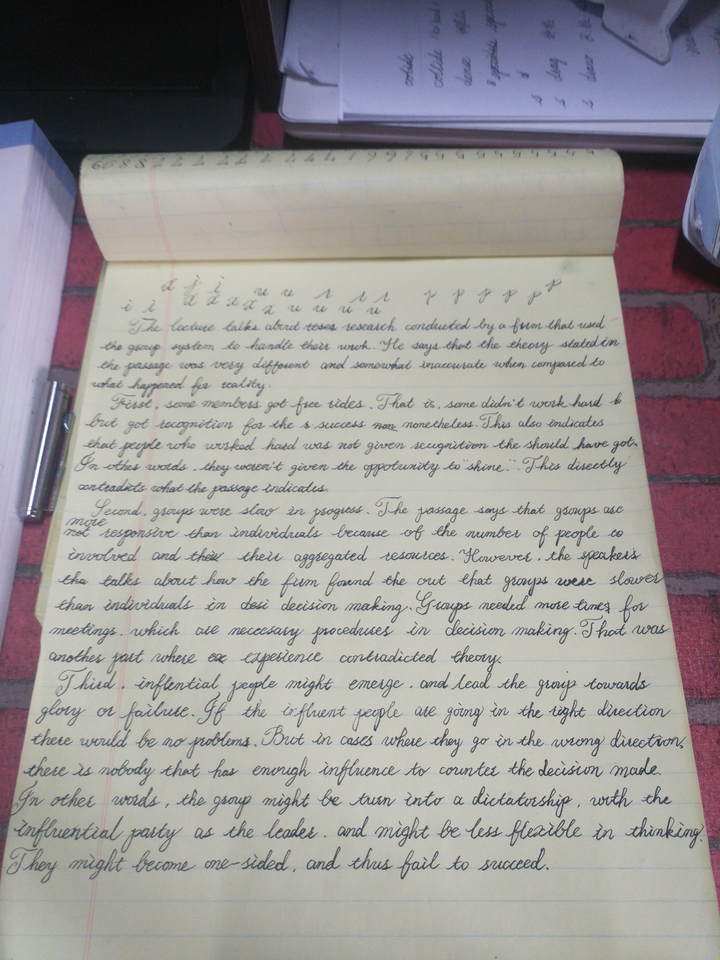 collide
collide
dense
opposite
d
s drag
s dense
The lecture talks about roses research conducted by a firm that used
the group system to handle their work. He says that the theory stated in
the passage was very different and somewhat inaccurate when compared to
what happened for reality.
First, some members got free rides. That is, some didn't work hard
but got recognition for the s success non nonetheless. This also indicates
that people who worked hard was not given recognition the should have got.
In other words, they weren't given the oppotunity to "shine". This directly
contradicts what the passage indicates.
Second, groups were slow in progress. The passage says that groups are
more
not responsive than individuals because of the number of people
involved and their their aggregated resources. However, the speakers
the talks about how the firm found the out that groups were slower
than individuals in desi decision making. Groups needed more times for
meetings, which are neccesary procedures in decision making. That was
another part where ex experience contradicted theory.
Third, inflential people might emerge, and lead the group towards
glory or failure. If the influent people are going in the right direction
there would be no problems. But in cases where they go in the wrong direction,
there is nobody that has enough influence to counter the decision made.
In other words, the group might be turn into a dictatorship, with the
influential party as the leader, and might be less flexible in thinking.
They might become one-sided, and thus fail to succeed.